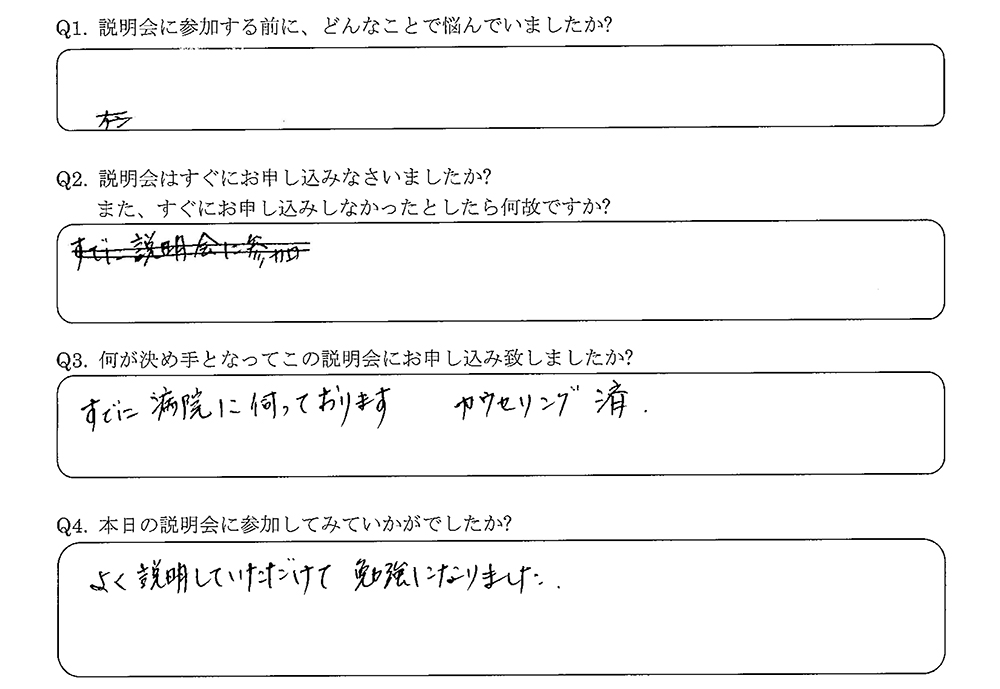 Q1. 説明会に参加する前に、どんなことで悩んでいましたか?
Q2. 説明会はすぐにお申し込みなさいましたか?
また、すぐにお申し込みしなかったとしたら何故ですか?
すでに説明会に参加
Q3. 何が決め手となってこの説明会にお申し込み致しましたか?
すでに病院に伺っております カウセリング済.
Q4. 本日の説明会に参加してみていかがでしたか?
よく説明していただけて勉強になりました.